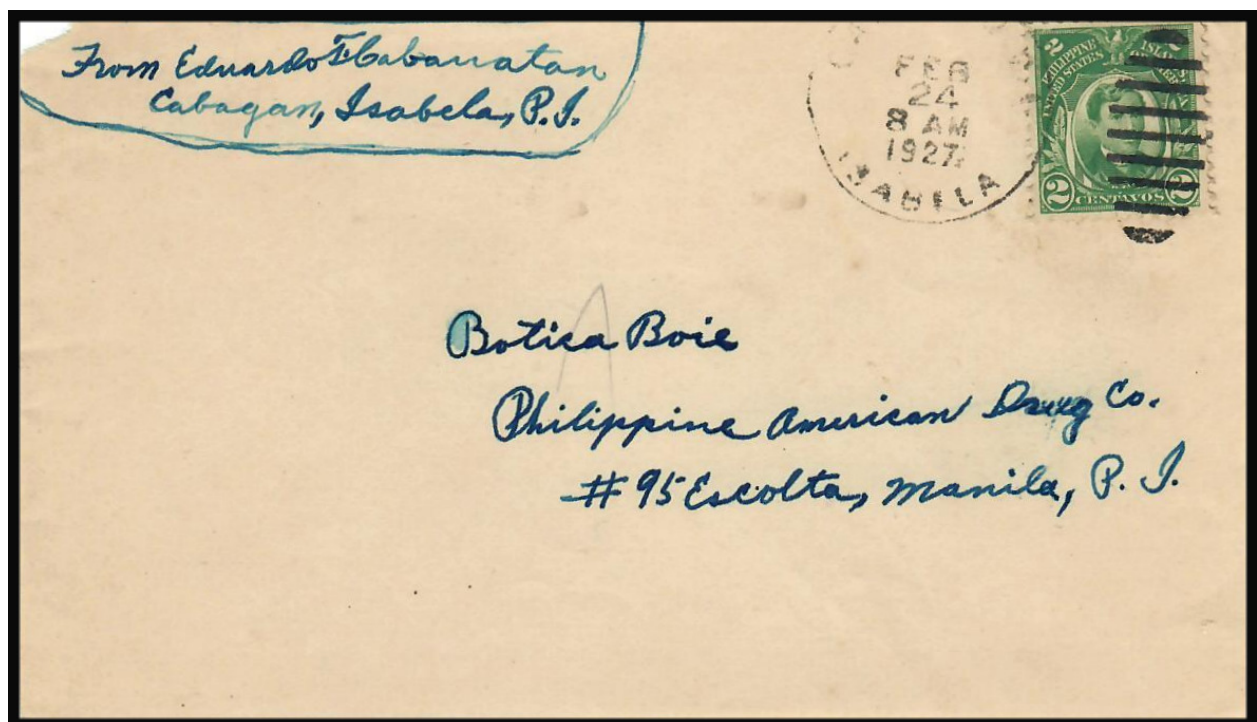 From Eduardo F. Cabanatan
Cabagan, Isabela, P.I.
FEB
24
8 AM
1927
ISABELA
2 2
PHILIPPINE ISLANDS
UNITED STATES OF AMERICA
2 CENTAVOS 2
A
Botica Boie
Philippine American Drug Co.
# 95 Escolta, Manila, P. I.